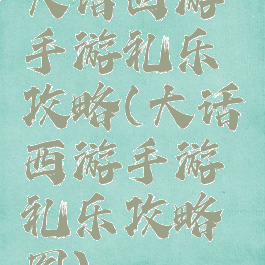 大话西游
手游礼乐
攻略(大话
西游手游
礼乐攻略
图)